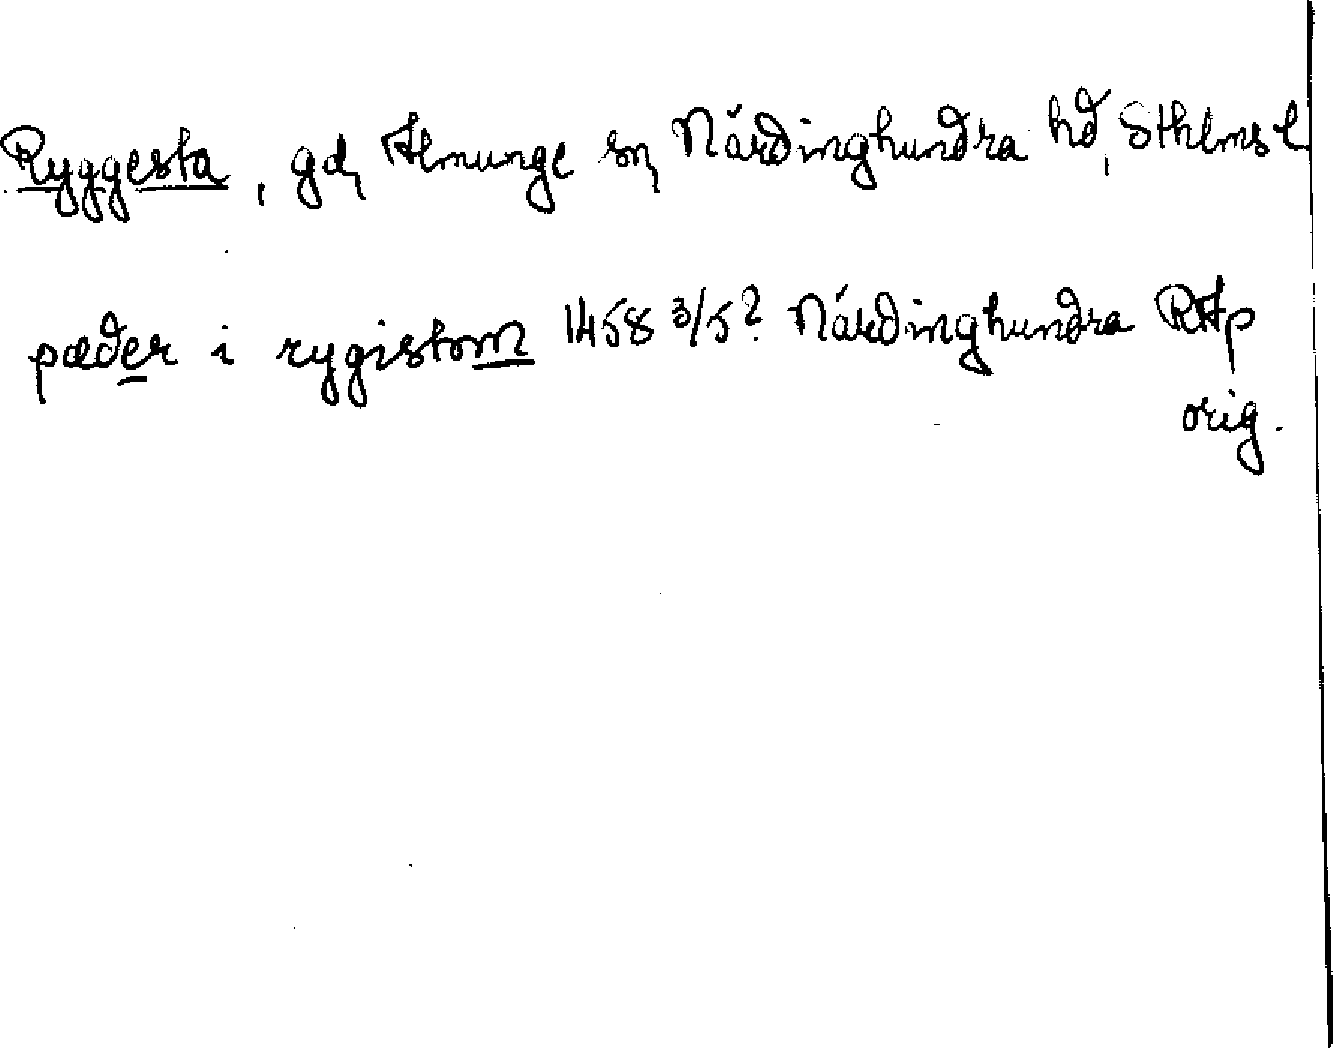 Ryggesta, gd, Almunge sn, Närdinghundra hd, Sthlms l
pæder i rygistom 1458 3/5? Närdinghundra RAp
orig.